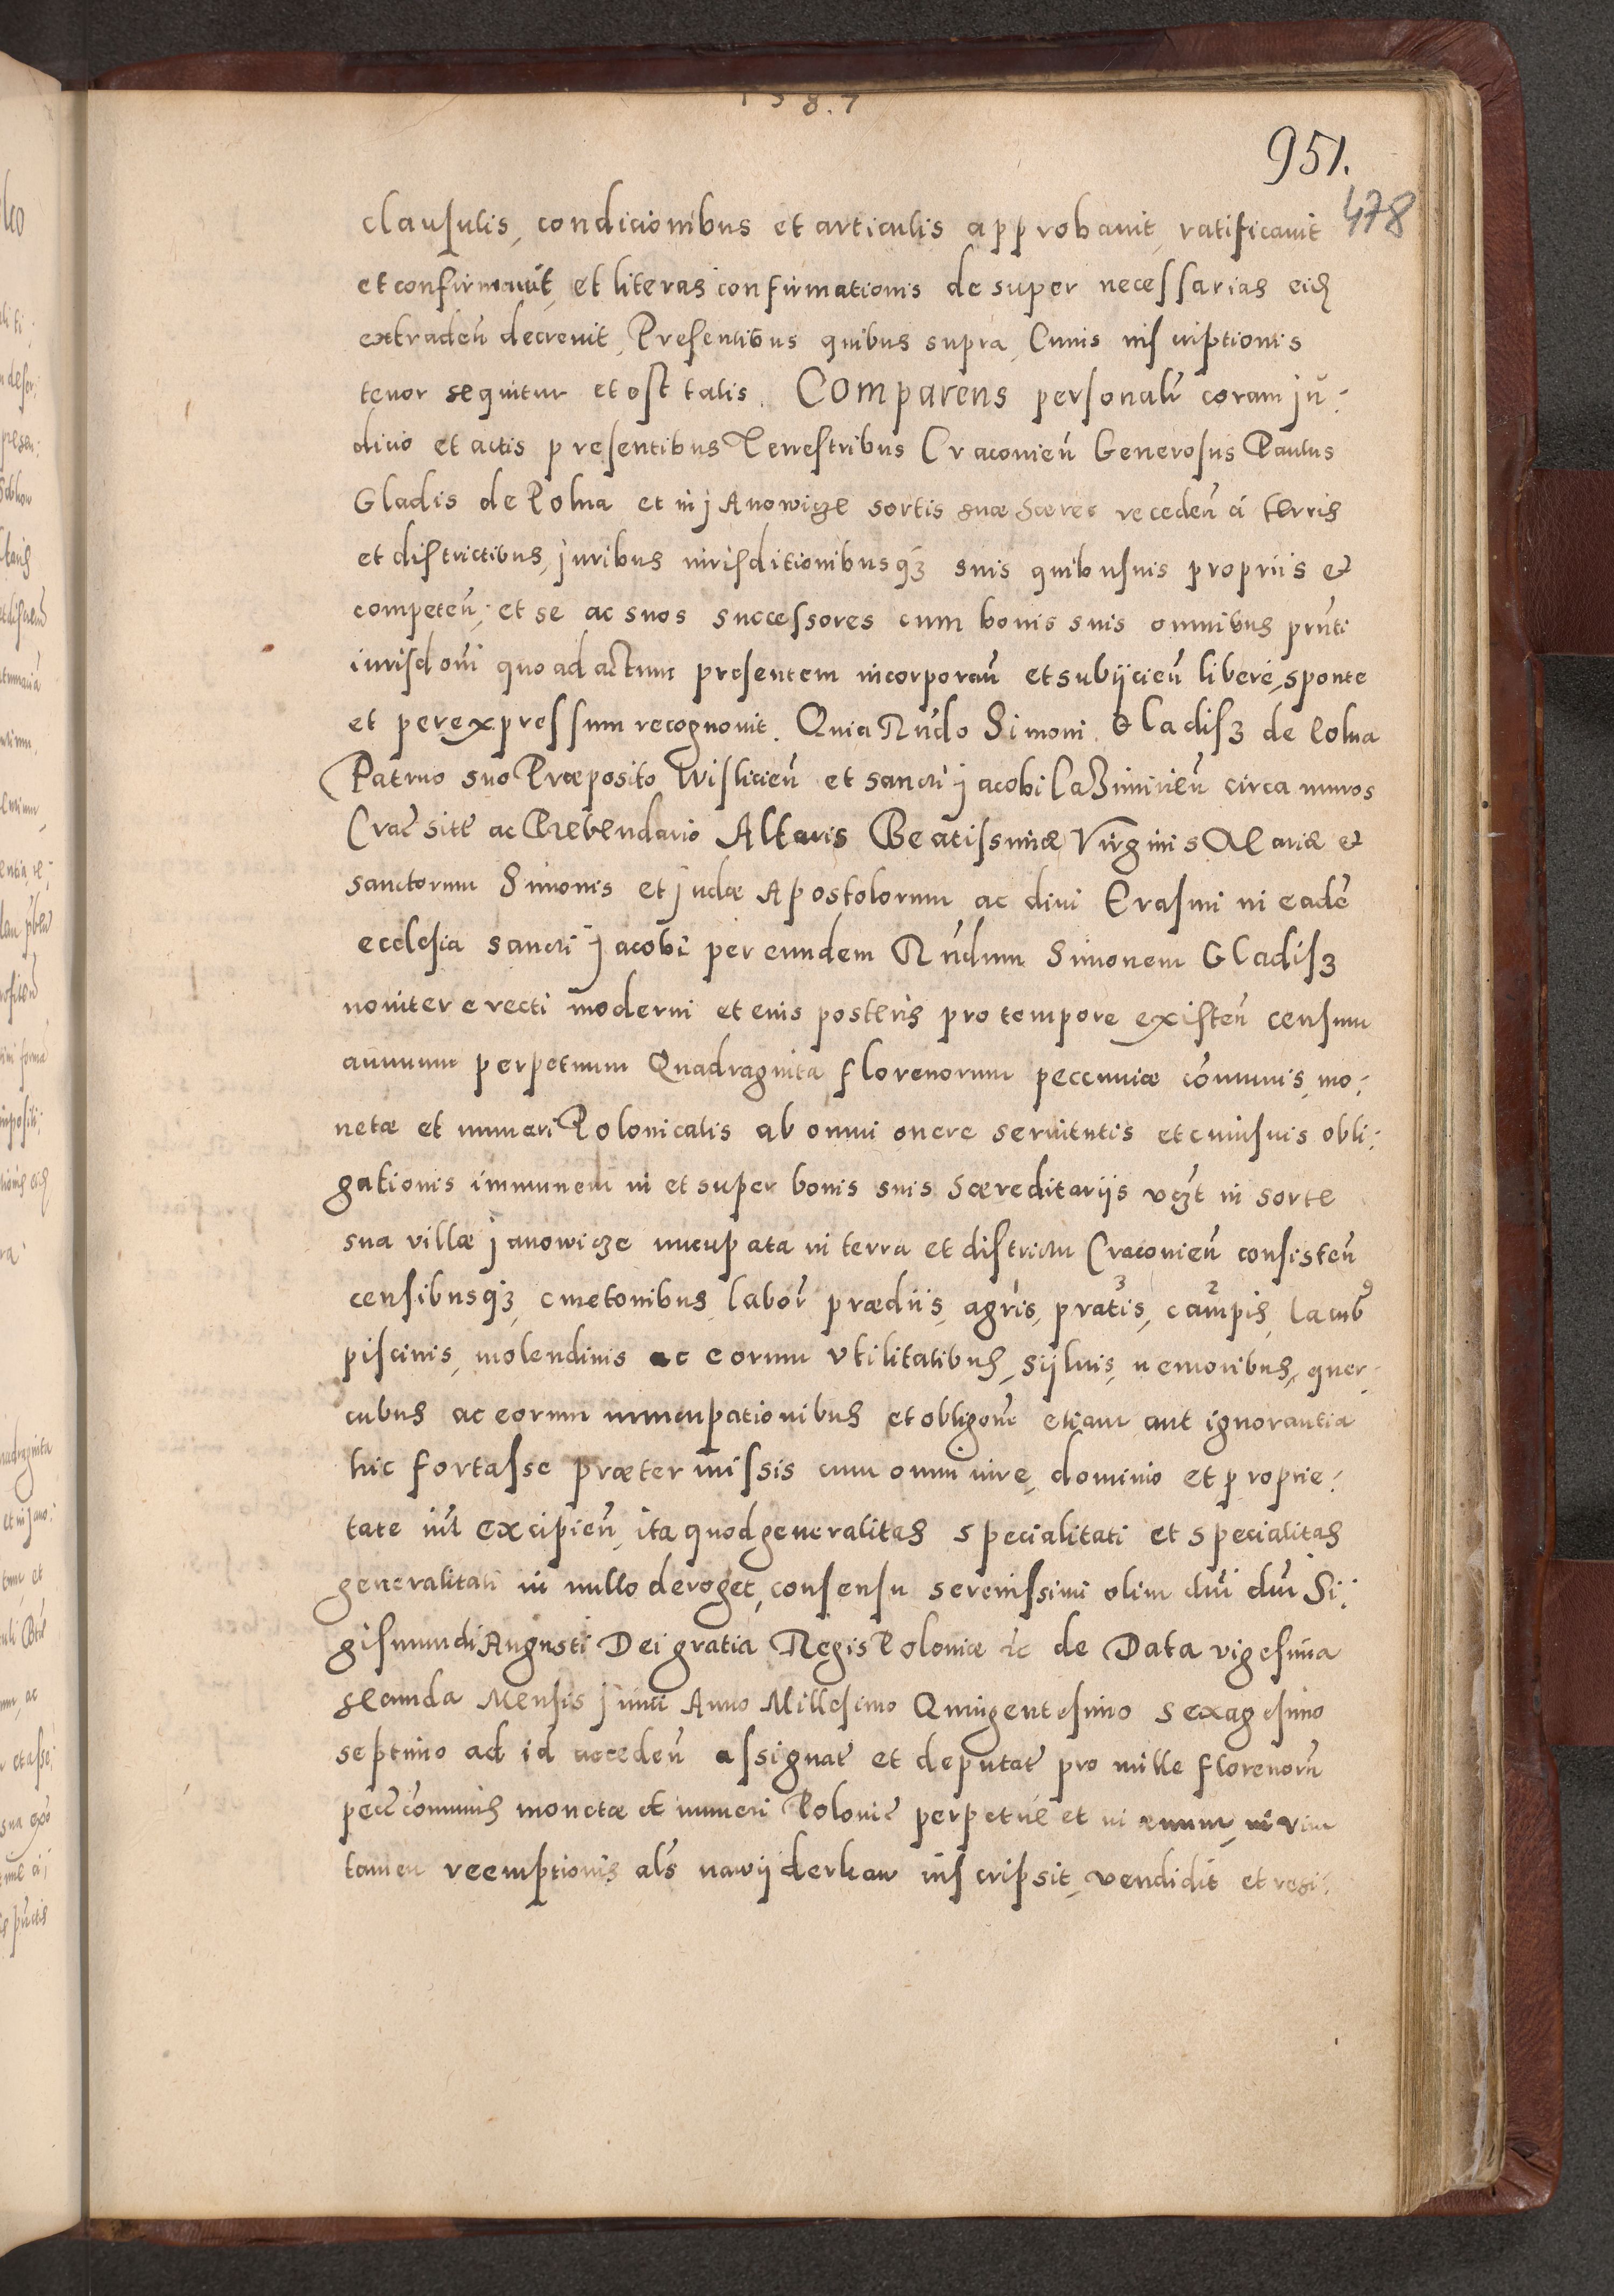 1587
951.
478
clausulis, condicionibus et articulis approbavit, ratificavit
et confirmavit, et literas confirmationis desuper necessarias eid
extraden̄ decrevit, Presentibus quibus supra, Cuius inscriptionis
tenor sequitur et est talis. Comparens personalr̄ coram ju:
dicio et actis presentibus Terrestribus Cracovien̄ Generosus Paulus
Gladis de Polna et in Janowicze sortis suæ hæres receden̄ á terris
et districtibus, juribus iurisditionibusqʒ suis quibusuis propriis et
competen̄, et se ac suos successores cum bonis suis omnibus prn̄ti
iurisdoni quo ad actum presentem incorporan̄ et subijcien̄ liberé, sponte
et per expressum recognovit. Quia Rn̄do Simoni Gladisʒ de Polna
Patruo suo Præposito Wislicien̄ et sancti Jacobi Casimirien̄ circa muros
Crac̄ site ac Prebendario Altaris Beatissimæ Virginis Mariæ et
sanctorum Simonis et Judæ Apostolorum ac divi Erasmi in eadē
ecclesia sancti Jacobi per eundem Rn̄dum Simonem Gladisʒ
noviter erecti moderni et eius posteris pro tempore existen̄ censum
annuum perpetuum Quadraginta florenorum peccuniæ cōmunis, mo:
netæ et numeri Polonicalis ab omni onere servitutis et cuiusuis obli:
gationis immunem in et super bonis suis hæreditarijs vcʒt in sorte
sua villæ Janowicze nucupata in terra et districtu Cracovien̄ consisten̄
censibusqʒ, cmetonibus, labor̄, prædiis, agris, pratis, campis, lacub9
3 2
piscinis, molendinis ac eorum vtilitatibus, sijluis, nemoribus, quer:
cubus ac eorum nuncupationibus et obligone etiam aut ignorantia
hic fortasse prætermissis cum omni iure, dominio et proprie:
tate nīl excipien̄, ita quod generalitas specialitati et specialitas
generalitati in nullo deroget, consensu serenissimi olim dn̄i dn̄i Si:
gismundi Augusti Dei gratia Regis Poloniæ ꝛc de Data vigesima
secunda Mensis Junii Anno Millesimo Quingentesimo sexagesimo
septimo ad id acceden̄ assignat̄ et deputat̄ pro mille florenorū
pecc̄ cōmunis monetæ et numeri Polonic̄ perpetúe et in ęuum, in vim
tamen reemptionis als̄ nawijderkaw inscripsit, vendidit et resi: